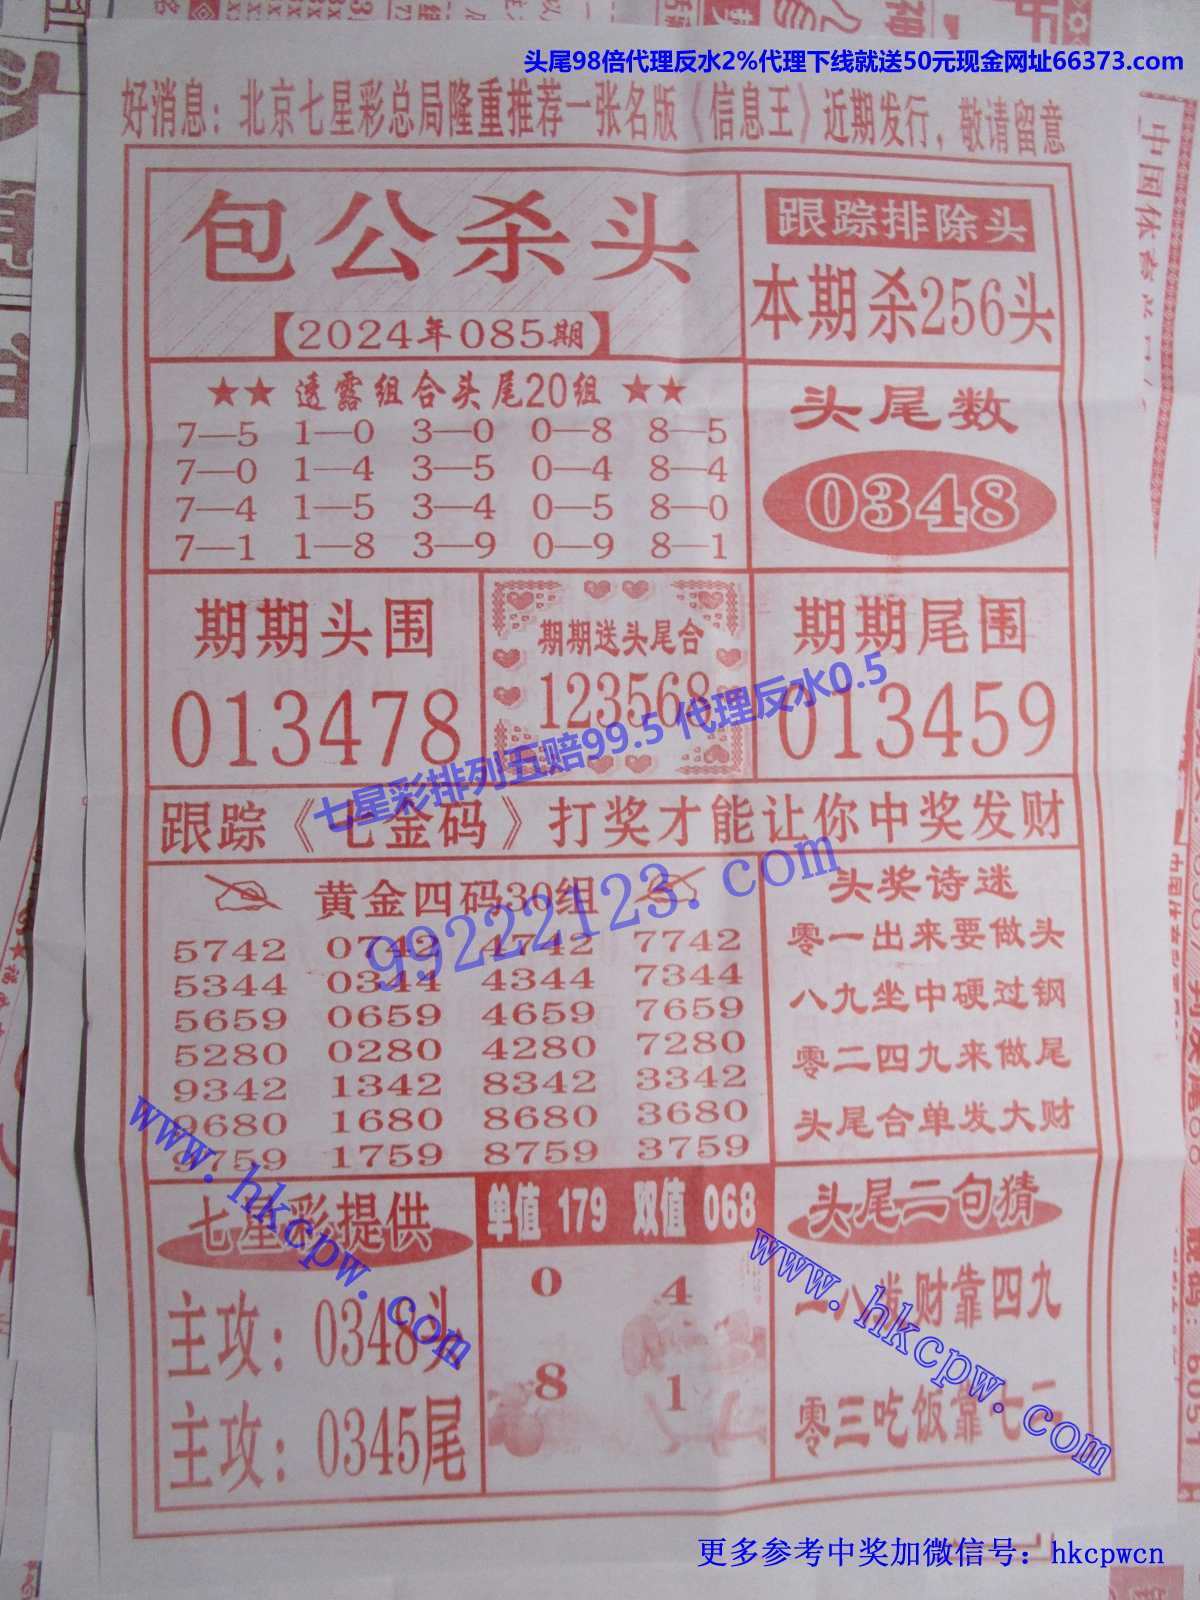 头尾98倍代理反水2%代理下线就送50元现金网址66373.com
好消息：北京七星彩总局隆重推荐一张名版《信息王》近期发行，敬请留意
包公杀头
【2024年085期】
跟踪排除头
本期杀256头
★★ 透露组合头尾20组 ★★
7—5 1—0 3—0 0—8 8—5
7—0 1—4 3—5 0—4 8—4
7—4 1—5 3—4 0—5 8—0
7—1 1—8 3—9 0—9 8—1
头尾数
0348
期期头围
013478
期期送头尾合
123568
期期尾围
013459
七星彩排列五赔99.5 代理反水0.5
跟踪《七金码》打奖才能让你中奖发财
99222123.com
黄金四码30组
5742 0742 4742 7742
5344 0344 4344 7344
5659 0659 4659 7659
5280 0280 4280 7280
9342 1342 8342 3342
9680 1680 8680 3680
9759 1759 8759 3759
头奖诗迷
零一出来要做头
八九坐中硬过钢
零二四九来做尾
头尾合单发大财
www.hkcpw.com
七星彩提供
主攻：0348头
主攻：0345尾
单值 179 双值 068
0 4
8 1
头尾二句猜
二八发财靠四九
零三吃饭靠七二
www.hkcpw.com
更多参考中奖加微信号：hkcpwcn
中国体